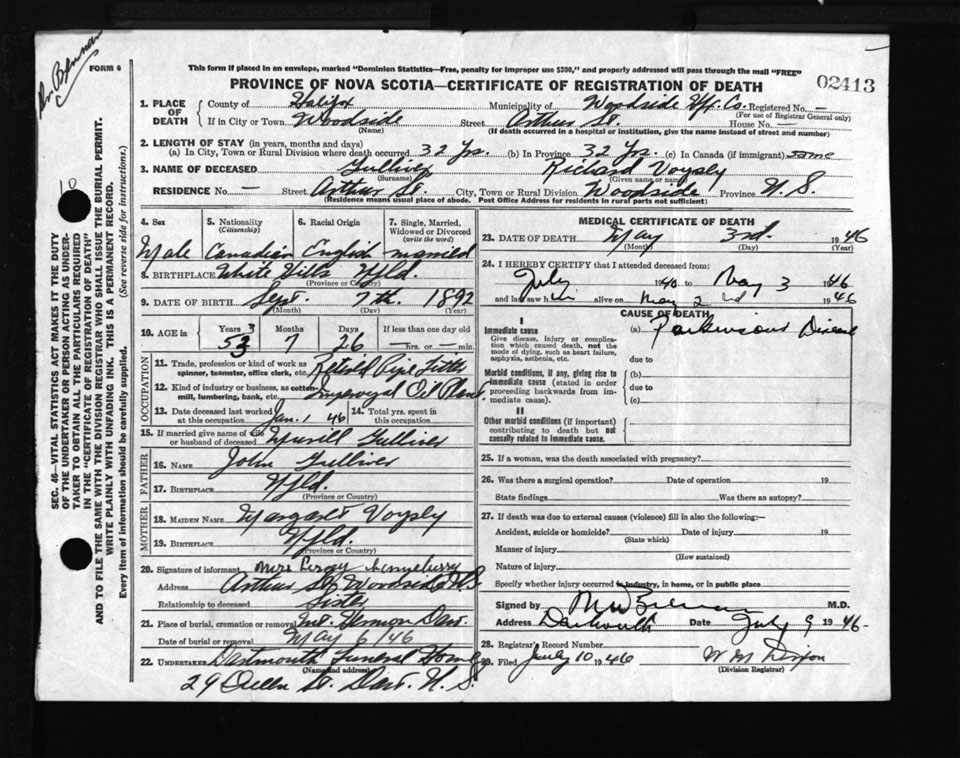 Dr. Brennan
FORM 6
This form if placed in an envelope, marked "Dominion Statistics—Free, penalty for improper use $300," and properly addressed will pass through the mail "FREE"
PROVINCE OF NOVA SCOTIA—CERTIFICATE OF REGISTRATION OF DEATH
02413
1. PLACE OF DEATH
County of Halifax Municipality of Woodside Hfx. Co. Registered No. —
(For use of Registrar General only)
If in City or Town Woodside Street Arthur St. House No. —
(Name) (If death occurred in a hospital or institution, give the name instead of street and number)
2. LENGTH OF STAY (in years, months and days)
(a) In City, Town or Rural Division where death occurred 32 Yrs. (b) In Province 32 Yrs. (c) In Canada (if immigrant) same
3. NAME OF DECEASED Gulliver Richard Voysly
(Surname) (Given name or names)
RESIDENCE No. — Street Arthur St. City, Town or Rural Division Woodside Province N.S.
(Residence means usual place of abode. Post Office Address for residents in rural parts not sufficient)
4. Sex 5. Nationality (Citizenship) 6. Racial Origin 7. Single, Married, Widowed or Divorced (write the word)
Male Canadian English married
8. BIRTHPLACE White Hills Nfld
(Province or Country)
9. DATE OF BIRTH Sept. 7th. 1892
(Month) (Day) (Year)
10. AGE in Years Months Days If less than one day old
53 7 26 —hrs. or —min.
OCCUPATION
11. Trade, profession or kind of work as spinner, teamster, office clerk, etc. Retired Pipe Fitter
12. Kind of industry or business, as cotton-mill, lumbering, bank, etc. Imperoyal Oil Plant
13. Date deceased last worked at this occupation Jan. 1 46 14. Total yrs. spent in this occupation
15. If married give name of wife or husband of deceased Gulliver
FATHER
16. NAME John Gulliver
17. BIRTHPLACE Nfld.
(Province or Country)
MOTHER
18. MAIDEN NAME Margaret Voysly
19. BIRTHPLACE Nfld.
(Province or Country)
20. Signature of informant Mrs Percy
Address Arthur St Woodside N.S
Relationship to deceased Sister
21. Place of burial, cremation or removal Mt. Hermon Dart.
Date of burial or removal May 6/46
22. UNDERTAKER Dartmouth Funeral Home
(Name and address)
29 Queen St. Dart. N.S.
MEDICAL CERTIFICATE OF DEATH
23. DATE OF DEATH May 3rd. 1946
(Month) (Day) (Year)
24. I HEREBY CERTIFY that I attended deceased from:
July 1940 to May 3 1946
and last saw him alive on May 2nd 1946
CAUSE OF DEATH
I
Immediate cause (a) Parkinsons Disease
Give disease, injury or complication which caused death, not the mode of dying, such as heart failure, asphyxia, asthenia, etc.
due to
Morbid conditions, if any, giving rise to immediate cause (stated in order proceeding backwards from immediate cause).
(b)
due to
(c)
II
Other morbid conditions (if important) contributing to death but not causally related to immediate cause.
25. If a woman, was the death associated with pregnancy?
26. Was there a surgical operation? Date of operation 19
State findings Was there an autopsy?
27. If death was due to external causes (violence) fill in also the following:—
Accident, suicide or homicide? Date of injury 19
(State which)
Manner of injury
(How sustained)
Nature of injury
Specify whether injury occurred in industry, in home, or in public place
Signed by M W Brennan M.D.
Address Dartmouth Date July 9 1946-
28. Registrar's Record Number
29. Filed July 10 1946 W M Dixon
(Division Registrar)
SEC. 46—VITAL STATISTICS ACT MAKES IT THE DUTY
OF THE UNDERTAKER OR PERSON ACTING AS UNDER-
TAKER TO OBTAIN ALL THE PARTICULARS REQUIRED
IN THE "CERTIFICATE OF REGISTRATION OF DEATH"
AND TO FILE THE SAME WITH THE DIVISION REGISTRAR WHO SHALL ISSUE THE BURIAL PERMIT.
WRITE PLAINLY WITH UNFADING INK. THIS IS A PERMANENT RECORD.
Every item of information should be carefully supplied. (See reverse side for instructions.)
10